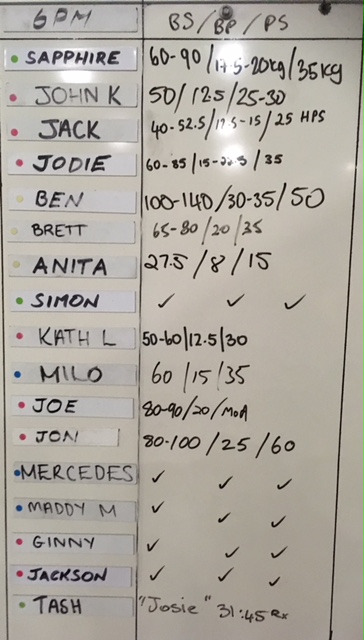 6PM BS/BP/PS
SAPPHIRE 60-90/17.5-20kg/35kg
JOHN K 50/12.5/25-30
JACK 40-52.5/12.5-15/25 HPS
JODIE 60-85/15-22.5/35
BEN 100-140/30-35/50
BRETT 65-80/20/35
ANITA 27.5/8/15
SIMON ✓ ✓ ✓
KATH L 50-60/12.5/30
MILO 60/15/35
JOE 80-90/20/MOA
JON 80-100/25/60
MERCEDES ✓ ✓ ✓
MADDY M ✓ ✓ ✓
GINNY ✓ ✓ ✓
JACKSON ✓ ✓ ✓
TASH "Josie" 31:45 Rx